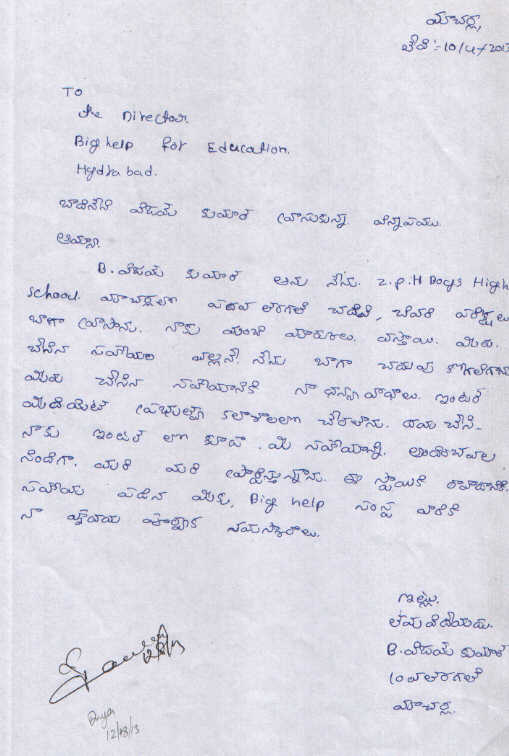 మాచర్ల,
తేది :- 10/4/201
TO
the Director
Big help for Education.
Hydrabad.
బాదినేడి విజయ్ కుమార్ వ్రాసుకున్న విన్నపము.
అయ్యా
B. విజయ్ కుమార్ అను నేను. Z.P.H Boys High
School. మాచర్లలో పదవ తరగతి చదివి, చివరి పరీక్షలు
బాగా వ్రాసాను. నాకు మంచి మార్కులు. వస్తాయి. మీరు.
చేసిన సహాయం వల్లనే. నేను బాగా చదువు కొగలిగాను
మీరు చేసిన సహాయానికి నా ధన్యవాదాలు. ఇంటర్
మీడియెట్ ప్రభుత్వ కలాశాలలో చేరతాను. దయ చేసి-
నాకు ఇంటర్ లో కూడా. మీ సహాయాన్ని. అందించవల
సిందిగా. మరి మరి ప్రార్థిస్తున్నాను. ఈ స్థాయికి రావడానికి.
సహాయ పడిన మీకు, Big help సంస్థ వారికి
నా హృదయ పూర్వక నమస్కారాలు.
ఇట్లు.
తమ విదేయుడు.
B. విజయ్ కుమార్
10 వ తరగతి
మాచర్ల.
12/8/13
12/08/13